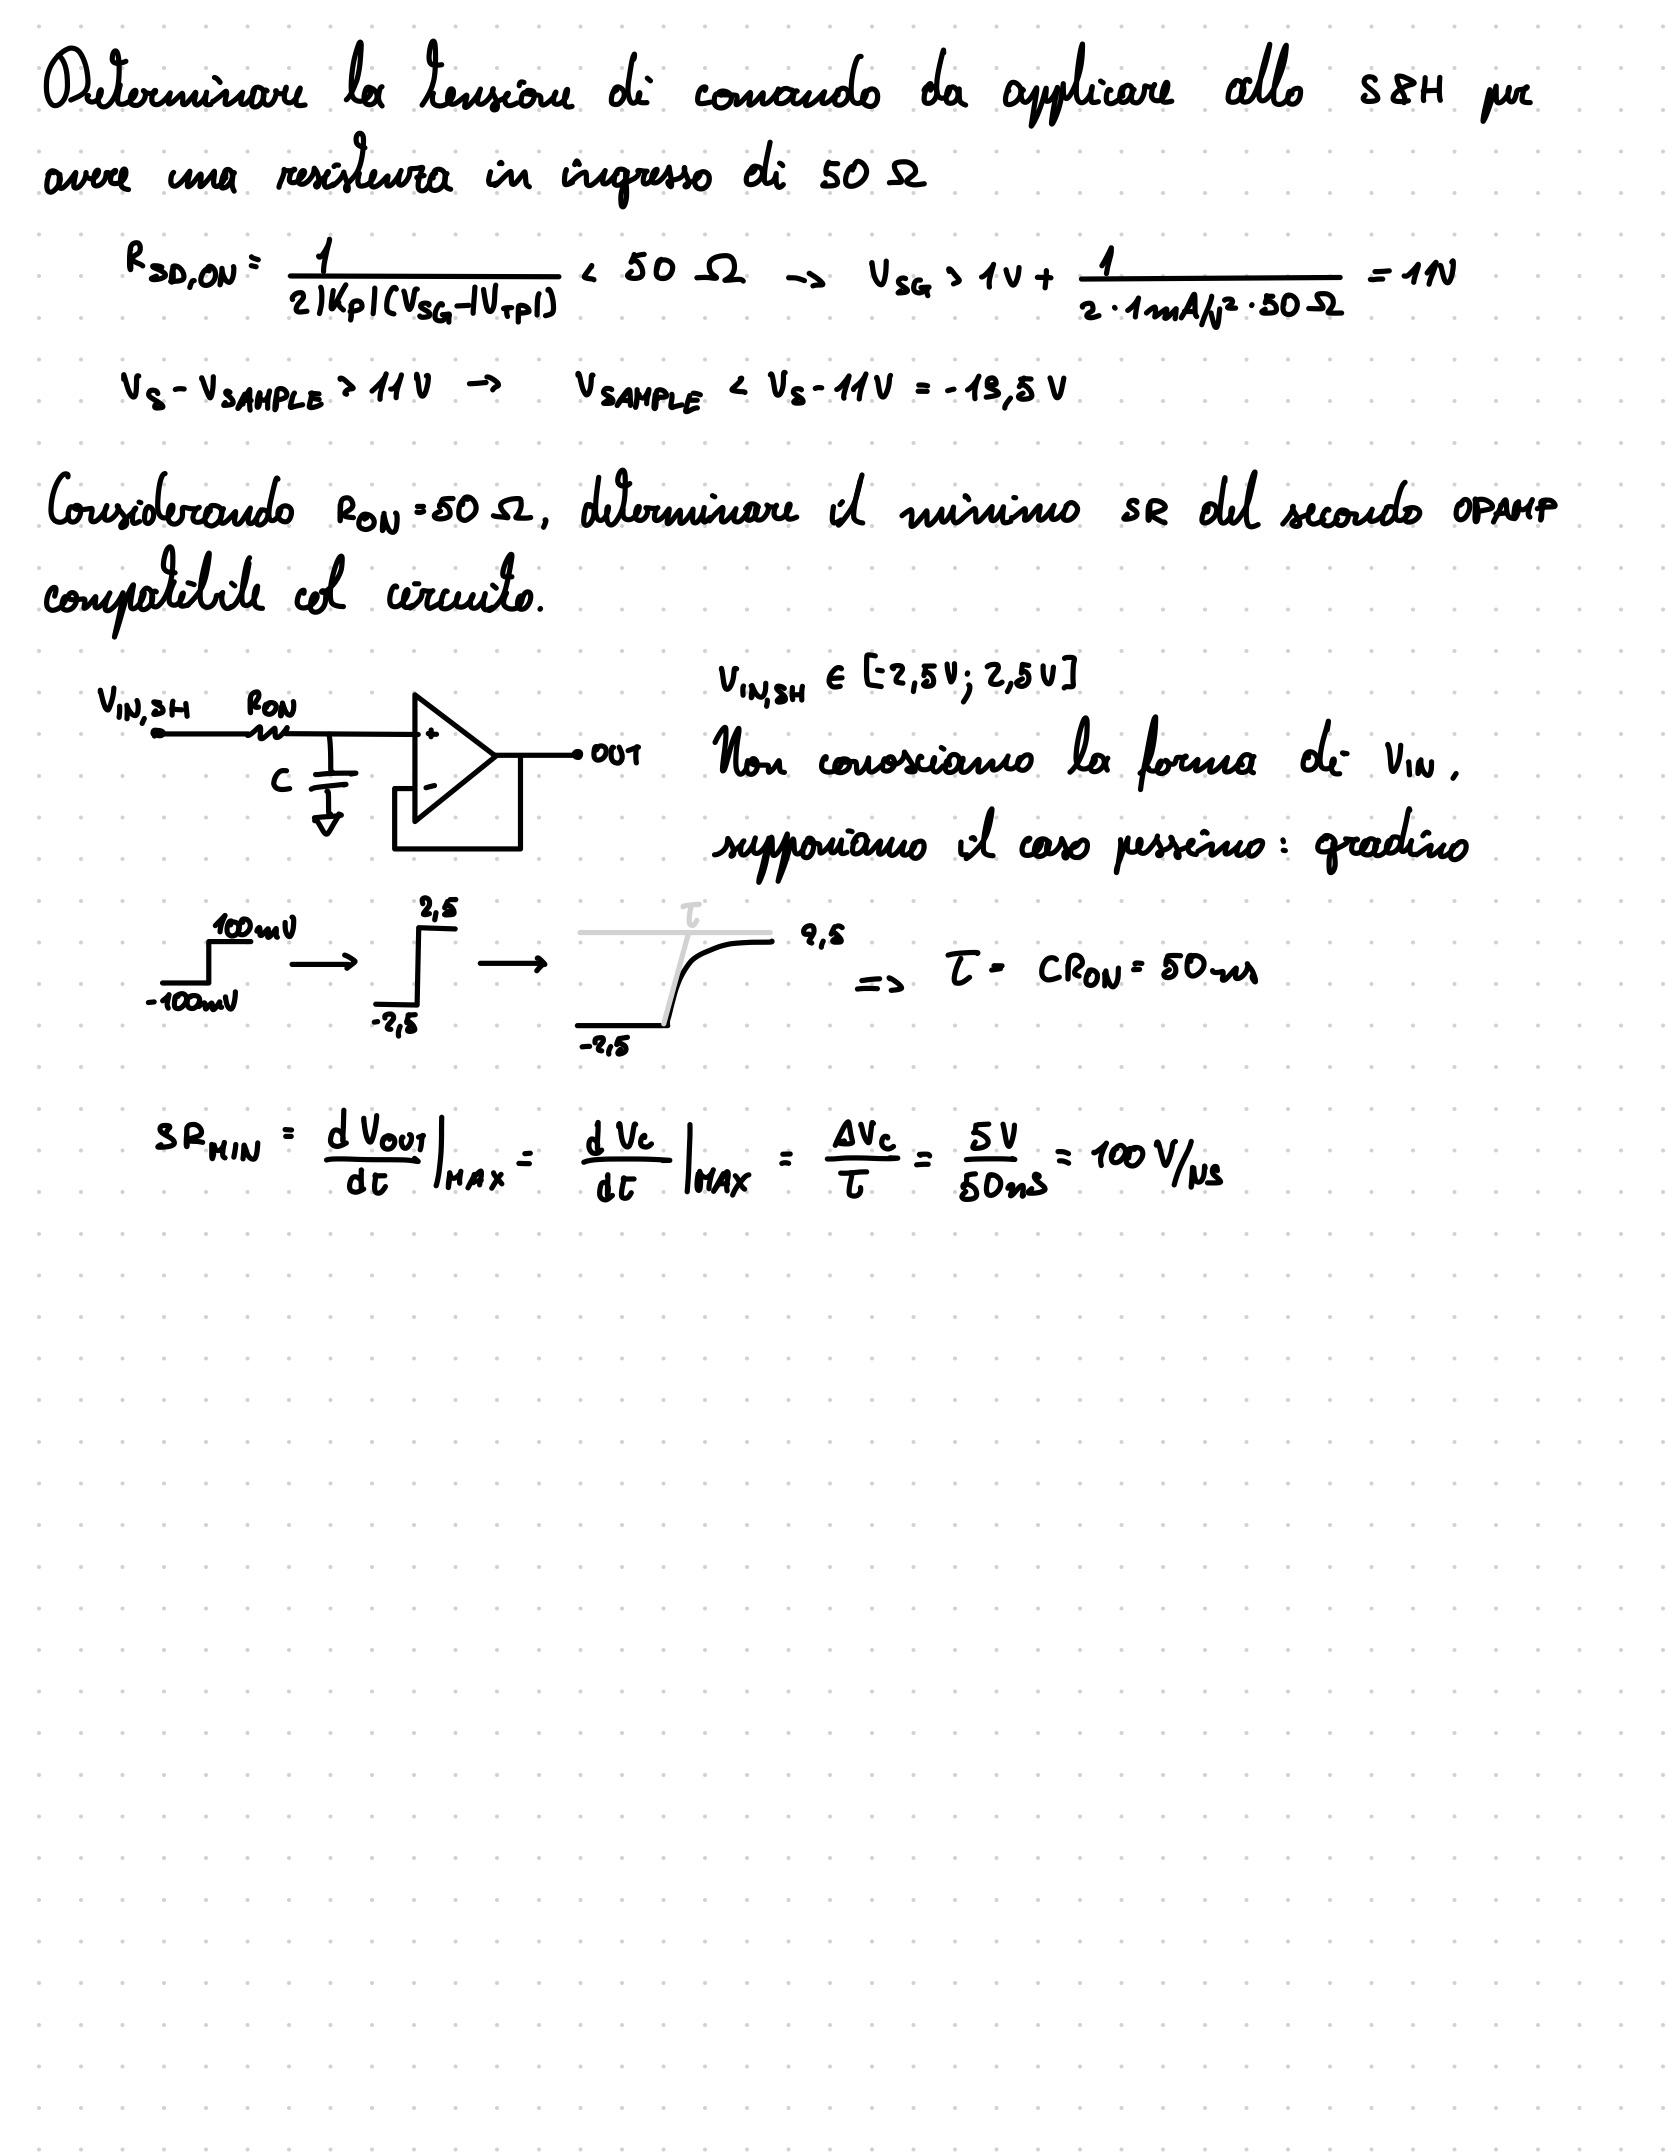 Determinare la tensione di comando da applicare allo S&H per
avere una resistenza in ingresso di 50 Ω
R_SD,ON = 1 / (2|K_P|(V_SG-|V_TP|)) < 50 Ω → V_SG > 1V + 1 / (2·1mA/V²·50Ω) = 11V
V_S - V_SAMPLE > 11V → V_SAMPLE < V_S - 11V = -13,5 V
Considerando R_ON = 50 Ω, determinare il minimo SR del secondo OPAMP
compatibile col circuito.
V_IN,SH ∈ [-2,5V; 2,5V]
V_IN,SH R_ON
+ OUT
Non conosciamo la forma di V_IN,
C
-
supponiamo il caso pessimo: gradino
100mV 2,5 τ 2,5
-100mV -2,5 -2,5
=> τ = CR_ON = 50ns
SR_MIN = dV_OUT/dt |_MAX = dV_C/dt |_MAX = ΔV_C/τ = 5V/50ns = 100 V/μs